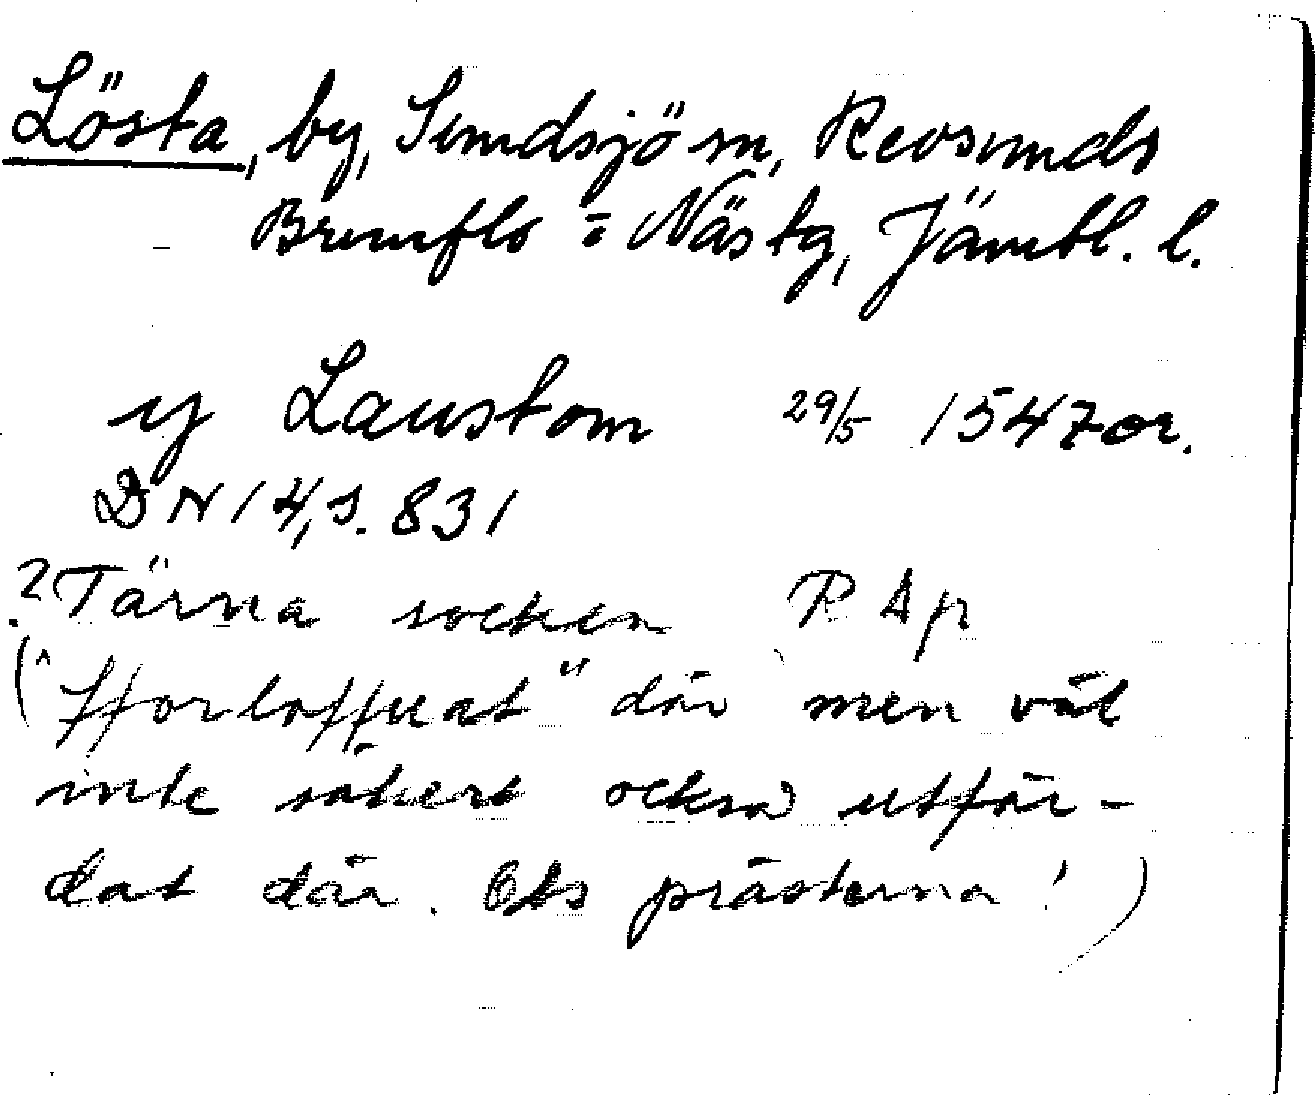 Lösta, by, Sundsjö sn, Revsunds
Brunflo = Näs tg, Jämtl. l.
y Laustom 29/5 1547 or.
DN 14, s. 831
? Tärna socken RAp
("fforloffuat" där men väl
inte säkert också utfär-
dat där. Obs prästerna!)